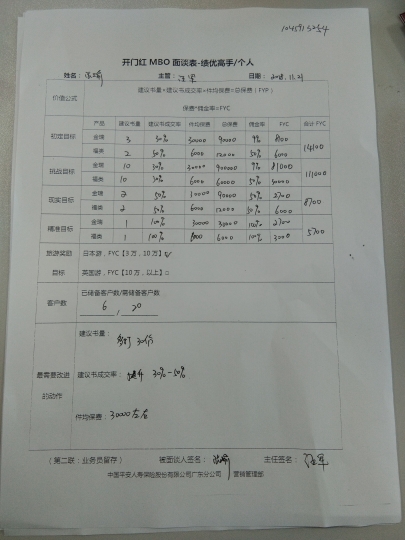 开门红 MBO 面谈表-绩优高手/个人
姓名： 主管： 日期：2018.11.21
价值公式
建议书量*建议书成交率=件均保费=总保费（FYP）
保费*佣金率=FYC
产品 建议书量 建议书成交率 件均保费 总保费 佣金率 FYC 合计 FYC
初定目标 金瑞 3 50% 30000 90000 9% 8100 14100
福类 2 50% 6000 12000 50% 6000
挑战目标 金瑞 10 30% 30000 900000 9% 81000 111000
福类 10 30% 6000 60000 50% 30000
现实目标 金瑞 2 50% 2700 8700
福类 2 50% 6000 12000 50% 6000
精准目标 金瑞 1 100% 30000 30000 2700 5700
福类 1 100% 6000 100% 3000
旅游奖励 日本游，FYC【3万，10万】☑
目标 英国游，FYC【10万，以上】□
客户数
已储备客户数/需储备客户数
6 , 20
建议书量： 30份
最需要改进的动作
建议书成交率：提升 30%-50%
件均保费：30000左右
（第二联：业务员留存） 被面谈人签名： 主任签名：
中国平安人寿保险股份有限公司广东分公司 营销管理部